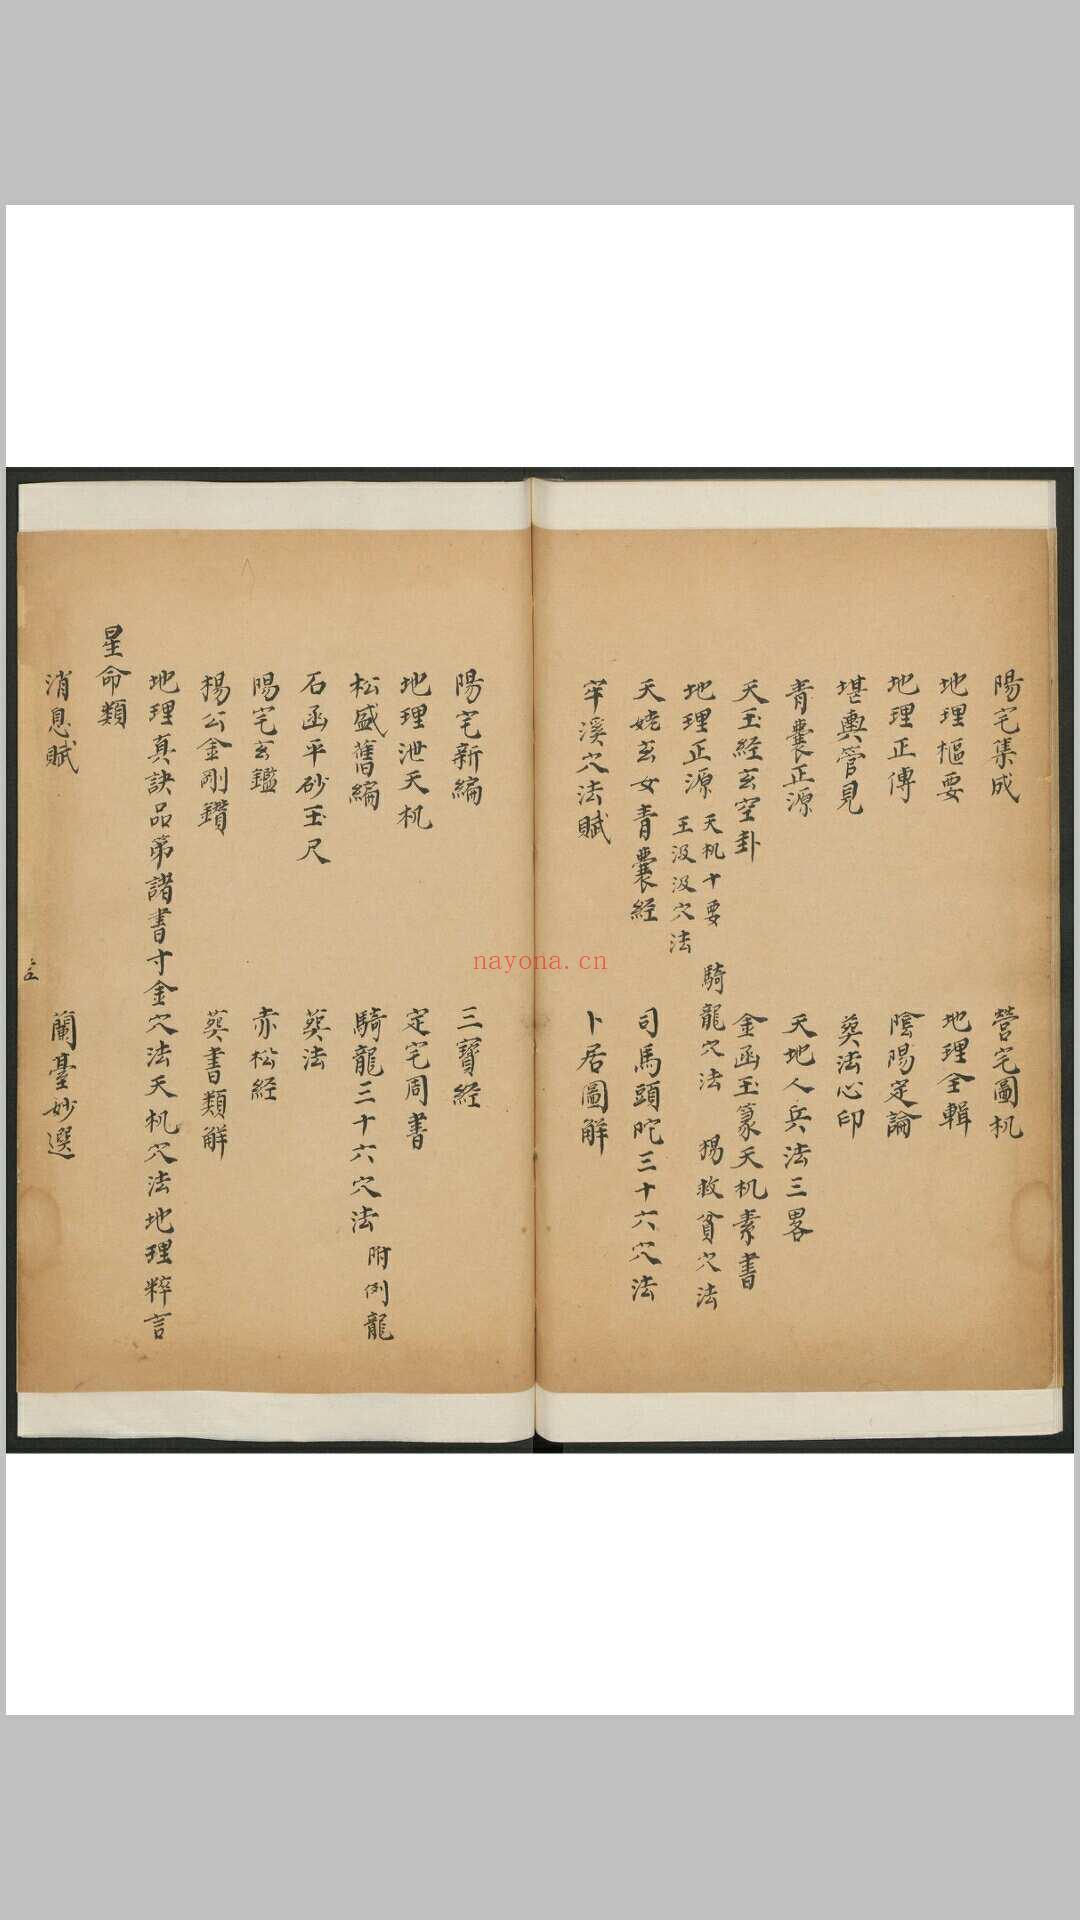 陽宅集成　營宅圖机
地理樞要　地理全輯
地理正傳　陰陽定論
堪輿管見　葬法心印
青囊正源　天地人兵法三畧
天玉經玄空卦　金函玉篆天机素書
地理正源　天机十要　王汲汲穴法　騎龍穴法　楊救貧穴法
天姥玄女青囊經　司馬頭陀三十六穴法
牢溪穴法賦　卜居圖解
陽宅新編　三寶經
地理泄天机　定宅周書
松盛舊編　騎龍三十六穴法　附例龍
石函平砂玉尺　葬法
陽宅玄鑑　赤松經
楊公金剛鑽　葬書類解
地理真訣品第諸書寸金穴法天机穴法地理粹言
星命類
消息賦　蘭臺妙選
nayona.cn